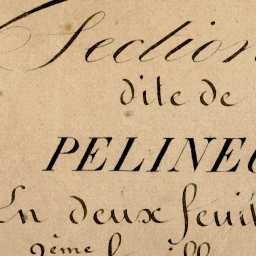 Section
dite de
PELINEU
En deux feuil
2ème feuill